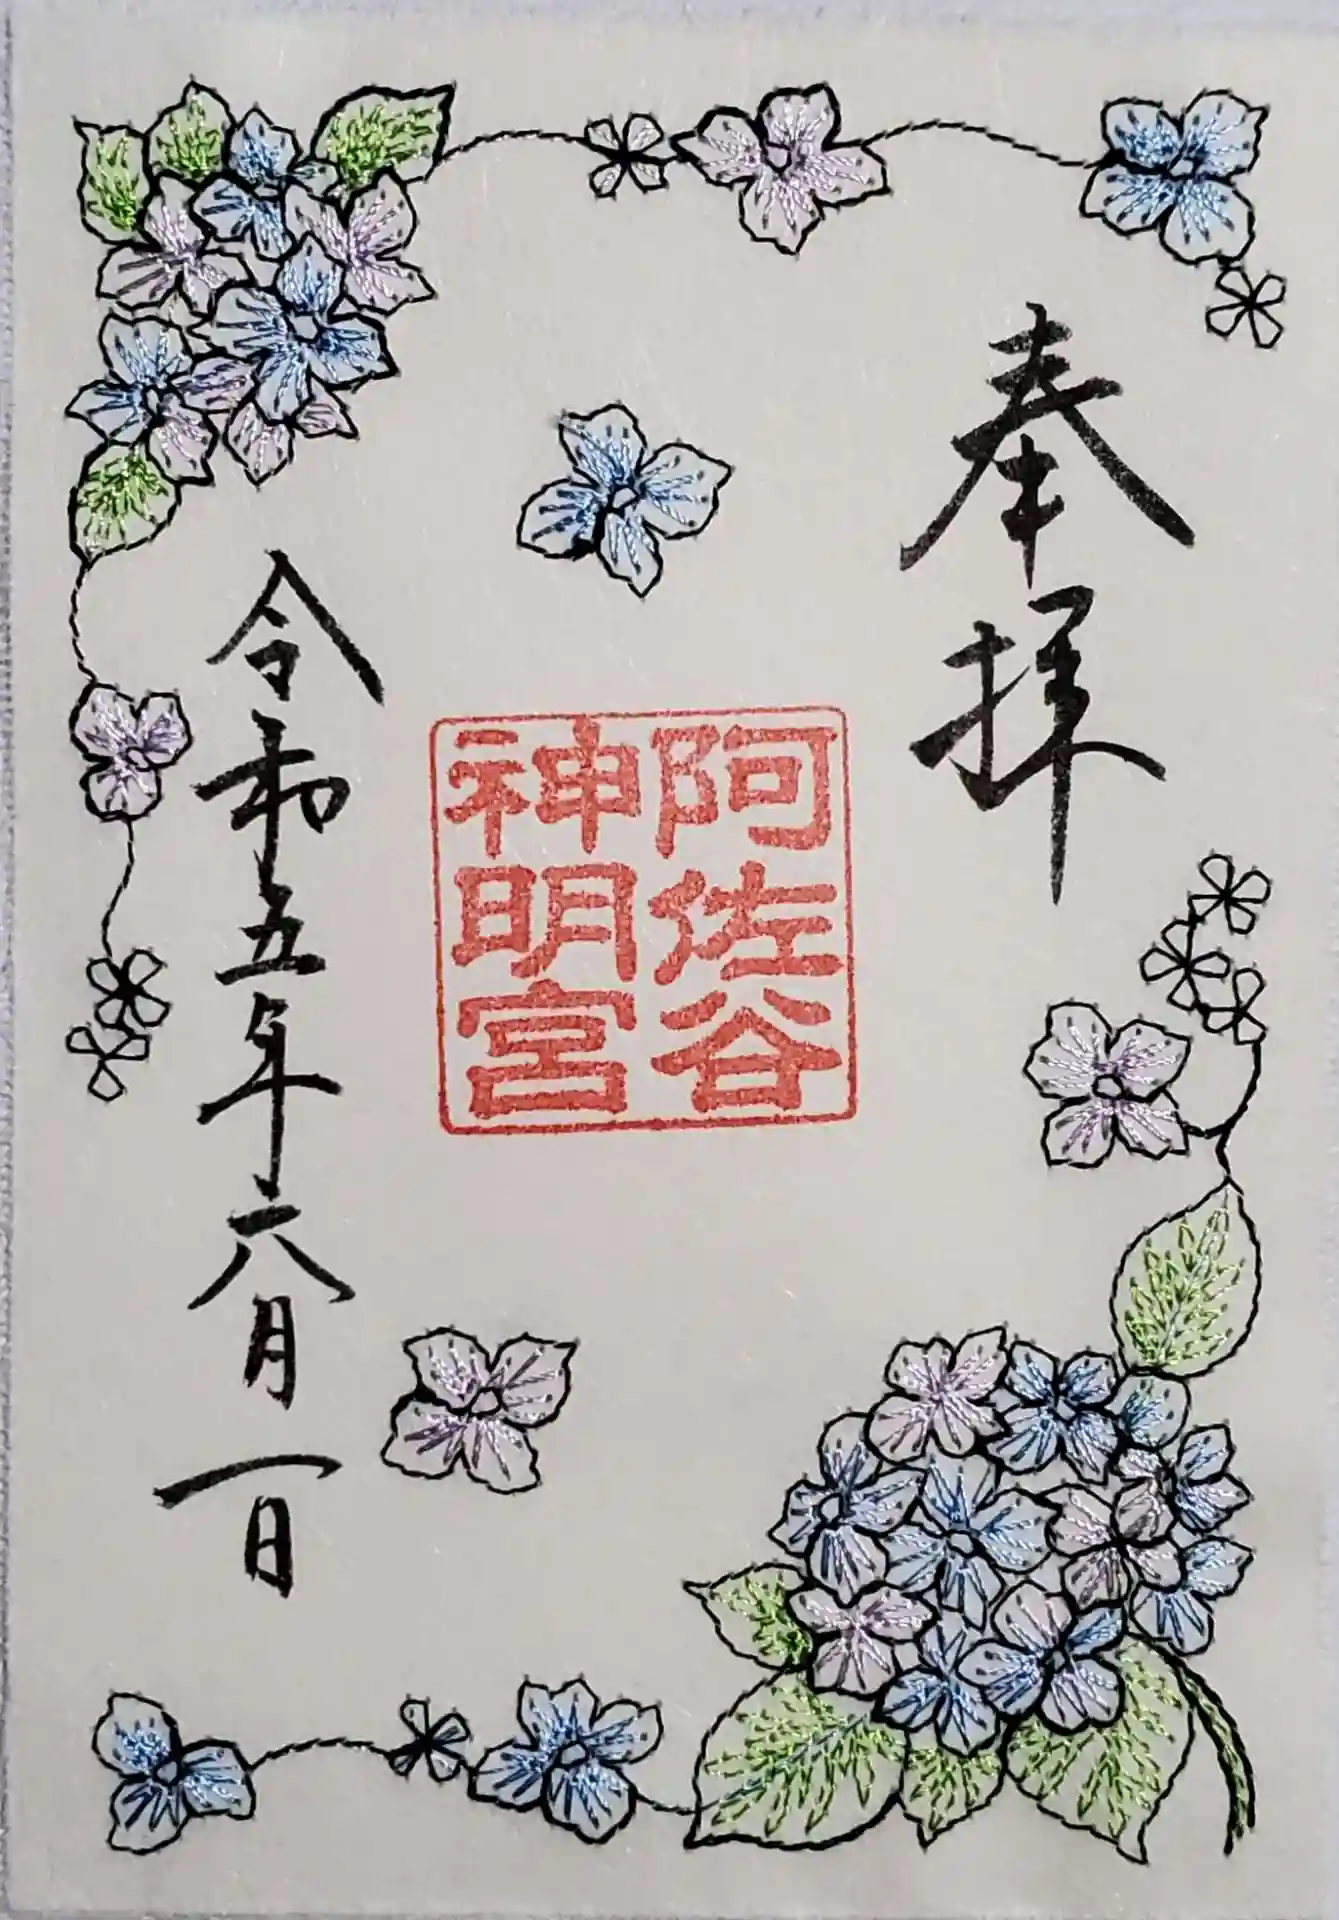 奉拝
阿佐谷
神明宮
令和五年六月一日